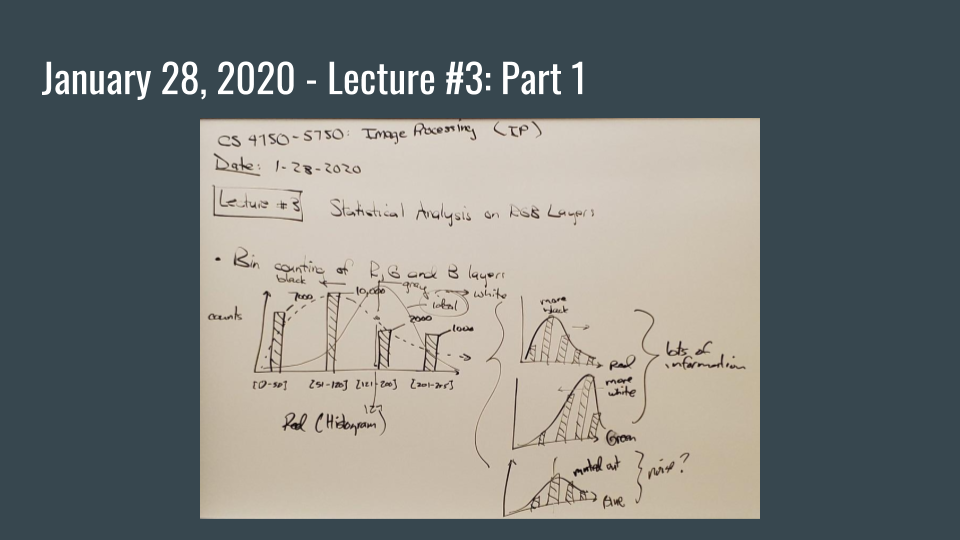 January 28, 2020 - Lecture #3: Part 1
CS 4750-5750: Image Processing (IP)
Date: 1-28-2020
Lecture #3 Statistical Analysis on RGB Layers
• Bin counting of R, G and B layers
black gray white
counts 7000 10,000 ideal 2000 1000
[0-50] [51-120] [121-200] [201-255]
127
Red (Histogram)
more
black
Red
more
white
Green
lots of
information
muted out
Blue
noise?